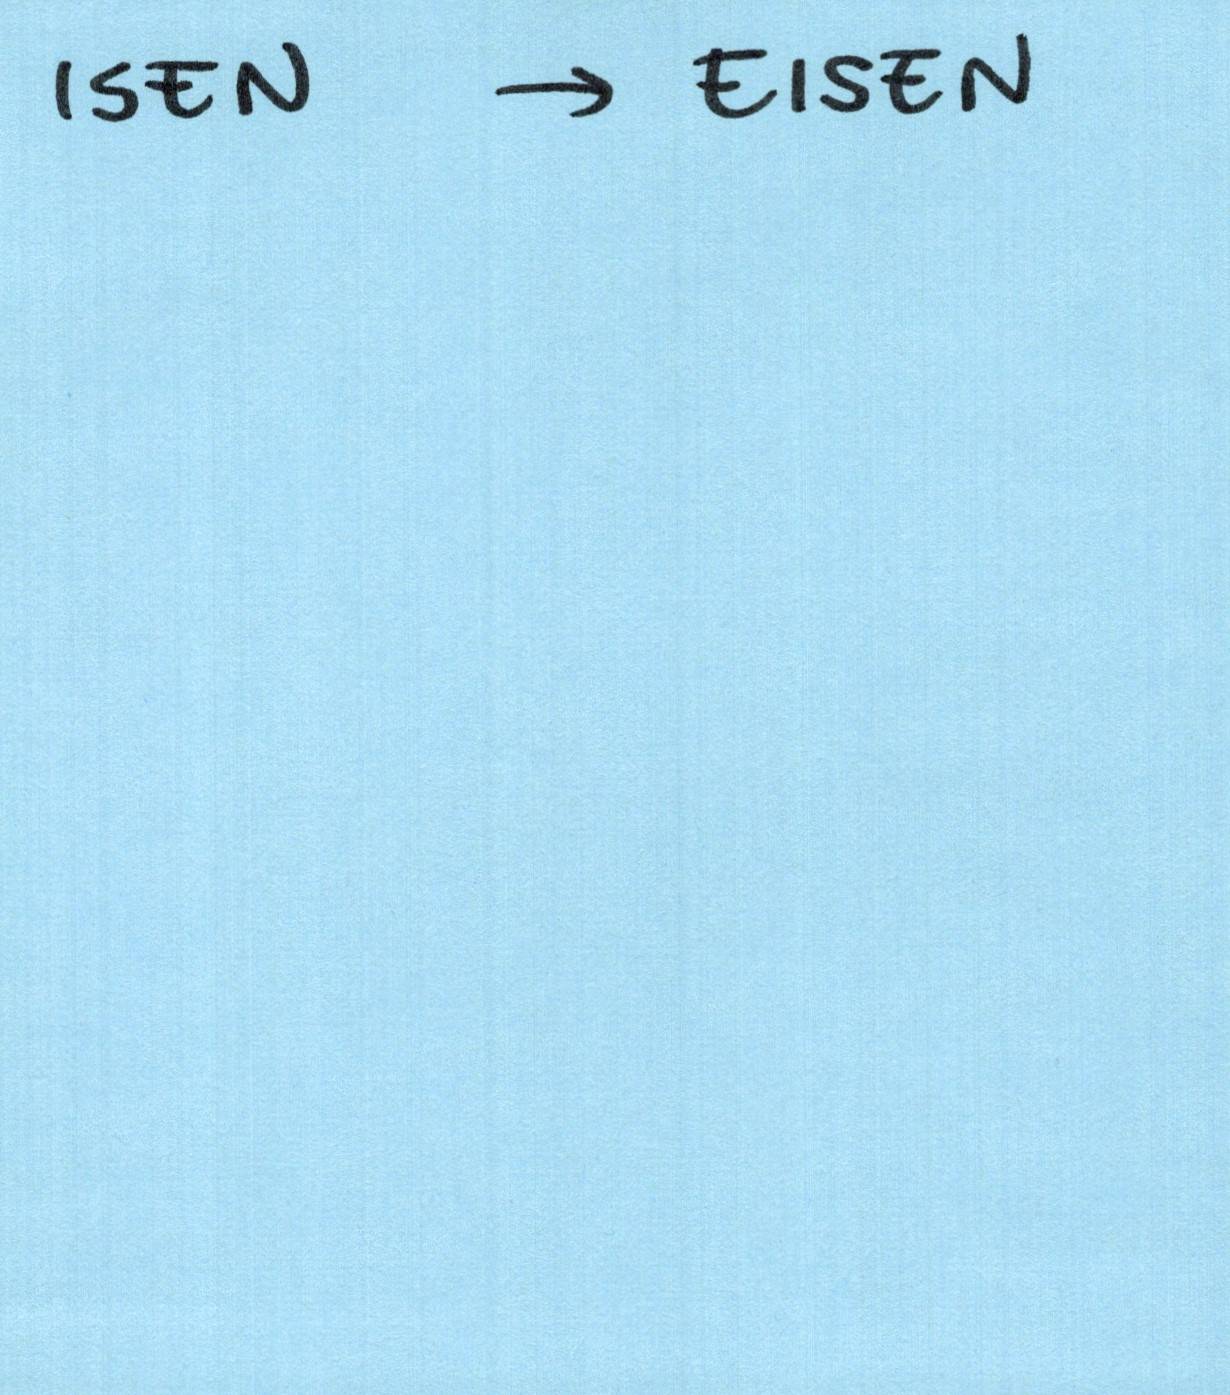 ISEN → EISEN